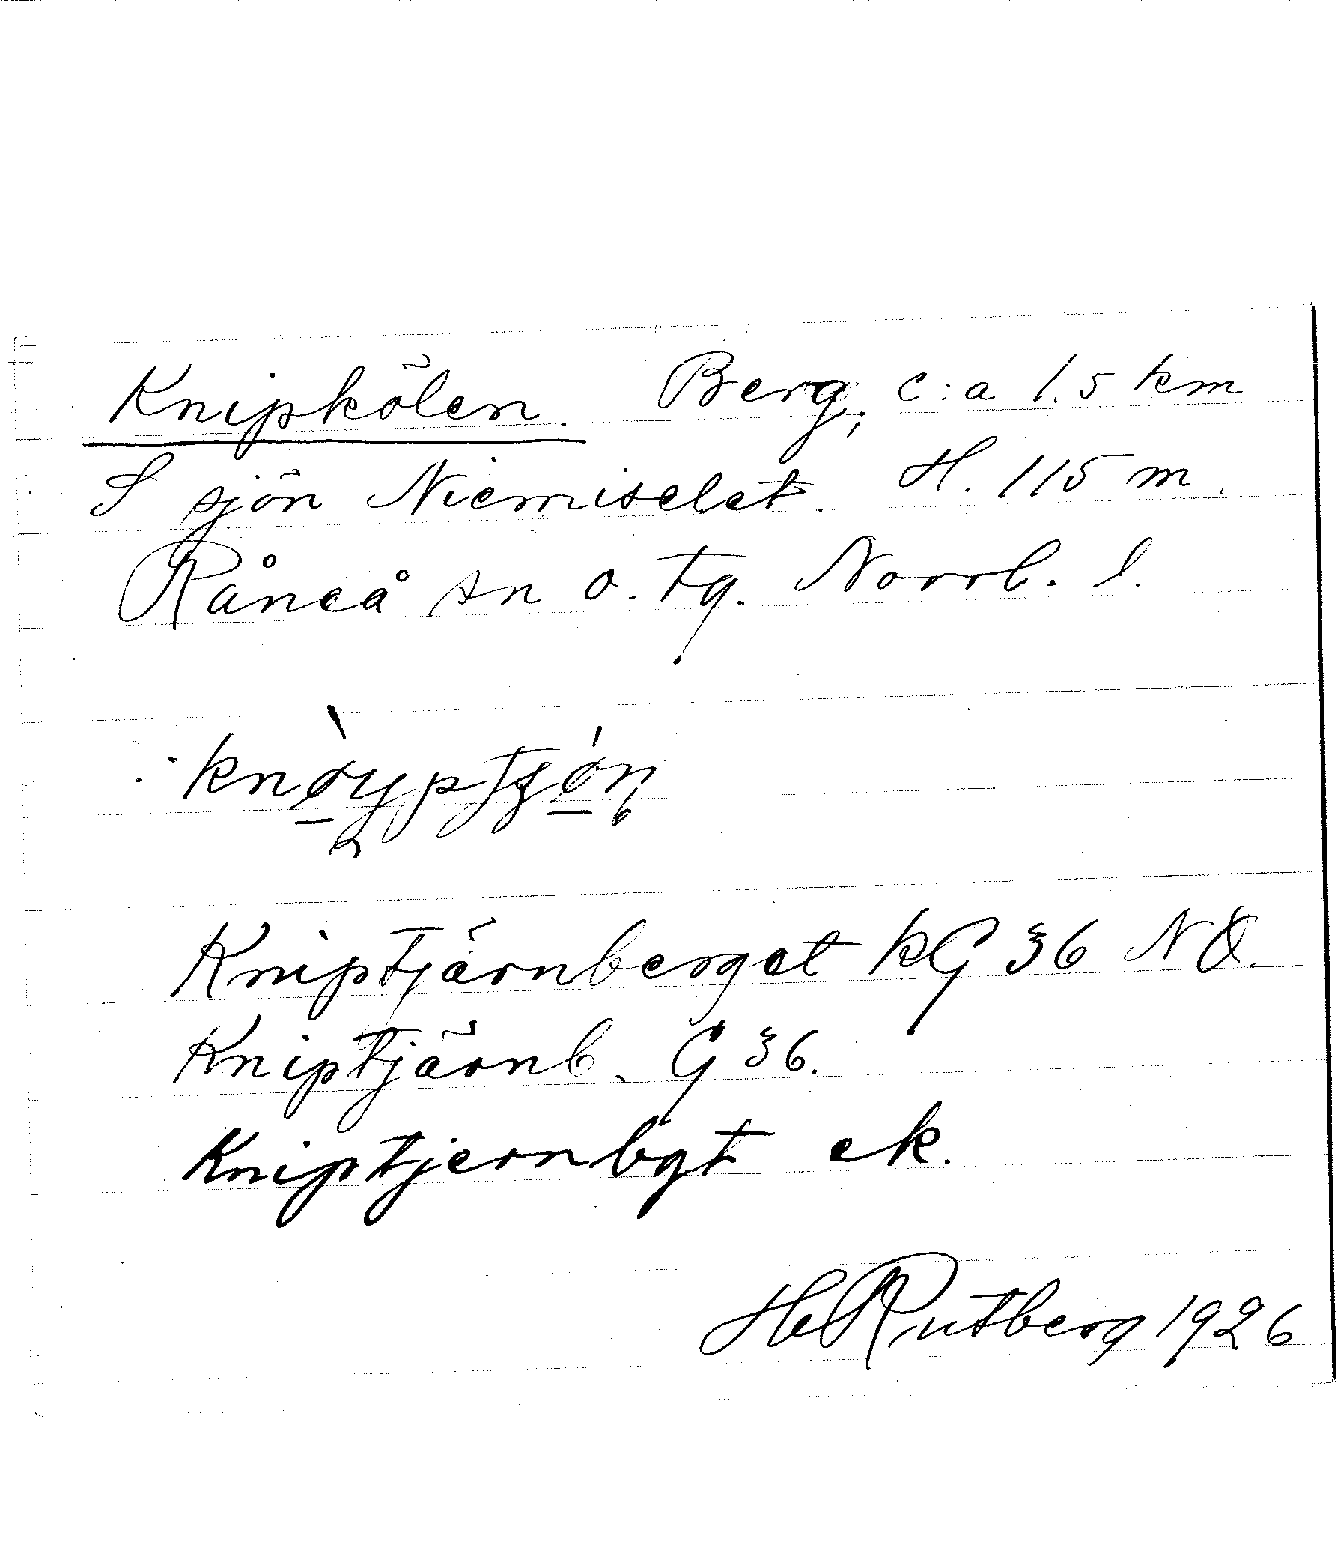 Knipkölen. Berg, c:a 1.5 km
S sjön Niemiselet. H. 115 m.
Råneå sn o. tg. Norrb. l.
Kniptjärnberget kG 36 NO.
Kniptjärnb. G 36.
Kniptjernbgt ek.
H Rutberg 1926